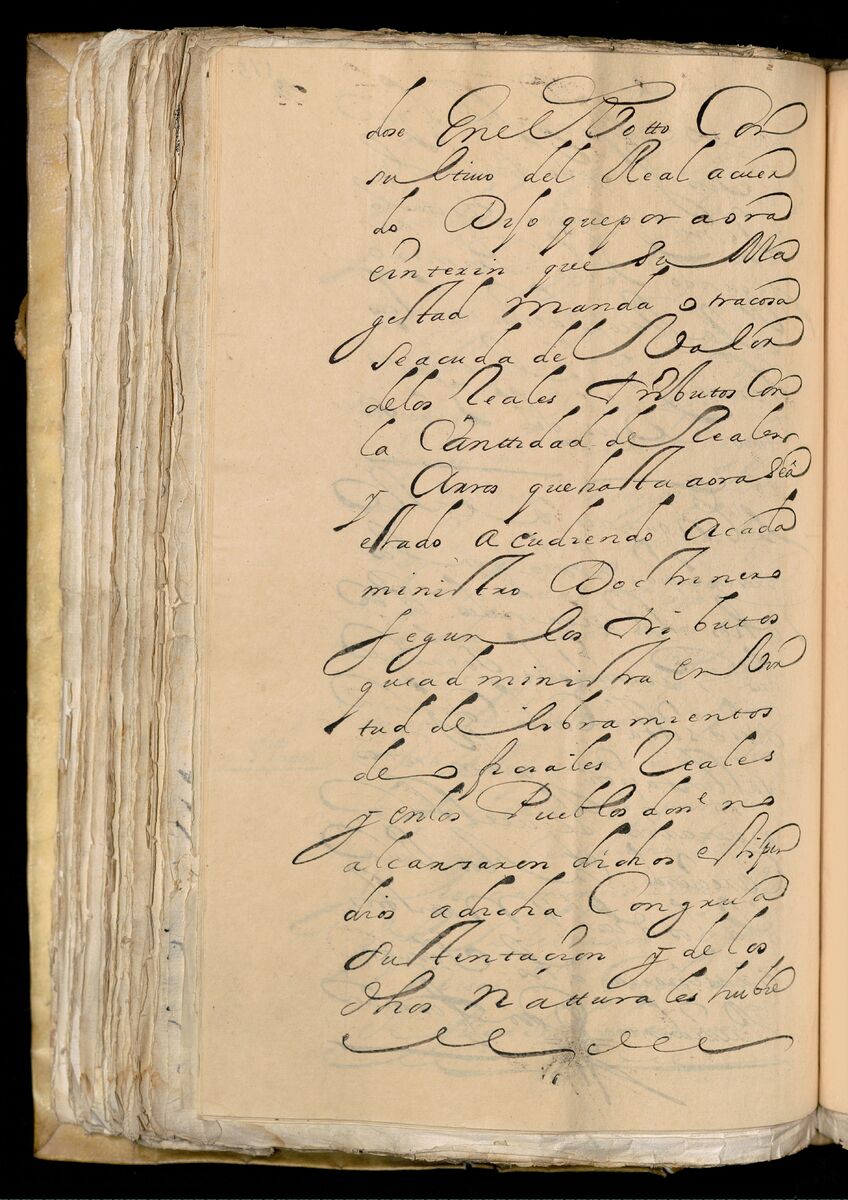 dose En el Votto Con
sultivo del Real acuer
do Dijo que por aora
einterin que Su Ma
gestad manda otra cosa
Se acuda del Valor
delos Reales Tributos Con
la Canttidad de Reales
y Arros que hasta aora Sea
estado acudiendo acada
ministro Doctrinero
segun los Tributos
que administra en Vir
tud de libramientos
de oficiales Reales
y enlos Pueblos donde no
alcansaren dichos estipen
dios adicha Congrua
sustentacion y de los
dhos Natturales hubie